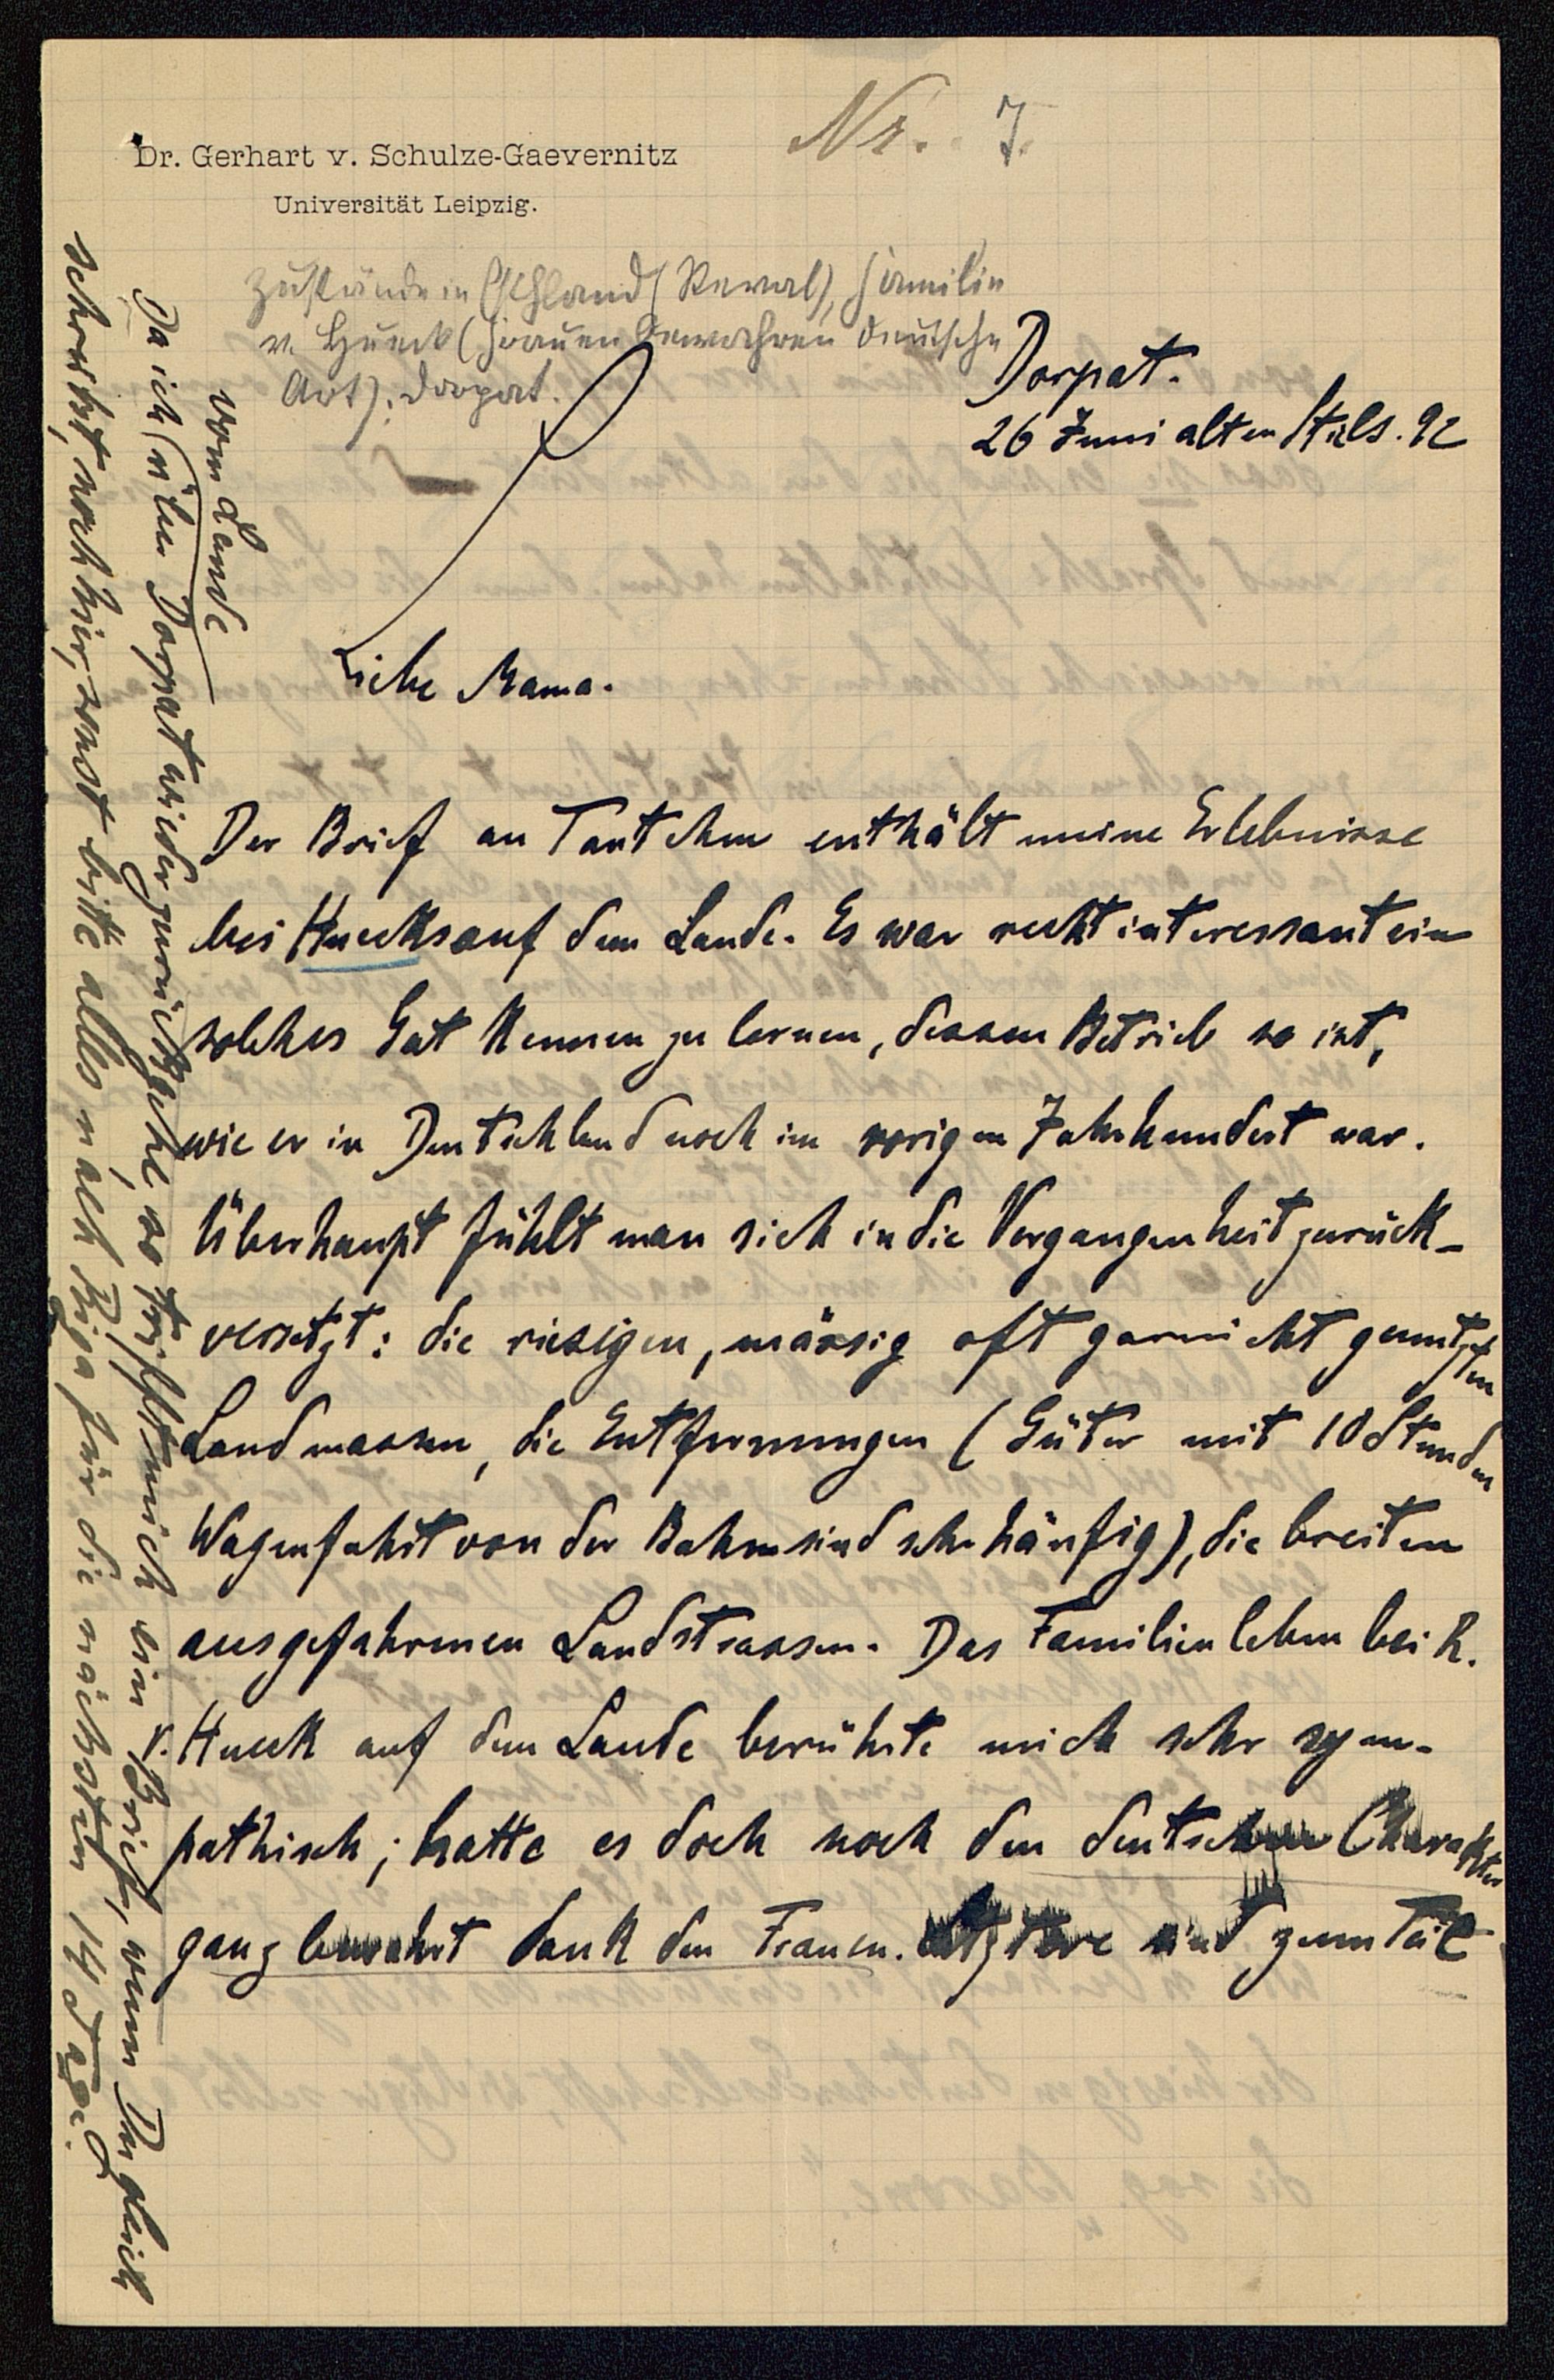 Nr. 7.
Dr. Gerhart v. Schulze-Gaevernitz
Universität Leipzig.
Zustände in Esthland (Reval), Familie
v. Hueck (Frauen bewahren deutsche
Art); Dorpat.
Dorpat.
26 Juni alten Stils. 92
Liebe Mama.
Der Brief an Tantchen enthält meine Erlebnisse
bei Huecks auf dem Lande. Es war recht interessant ein
solches Gut kennen zu lernen, dessen Betrieb so ist,
wie er in Deutschland noch im vorigen Jahrhundert war.
Überhaupt fühlt man sich in die Vergangenheit zurück-
versetzt: die riesigen, mässig oft garnicht genutzten
Landmassen, die Entfernungen (Güter mit 10 Stunden
Wagenfahrt von der Bahn sind sehr häufig), die breiten
ausgefahrenen Landstrassen. Das Familienleben bei R.
v. Hueck auf dem Lande berührte mich sehr sym-
pathisch; hatte es doch noch den deutschen Charakter
ganz bewahrt dank den Frauen. Letztere sind zum Teil
vom Lande
Da ich über Dorpat wieder zurückgehe, so trifft mich ein Brief, wenn Du gleich
schreibst, noch hier, sonst bitte alles nach Riga für die nächsten 14 Tage.